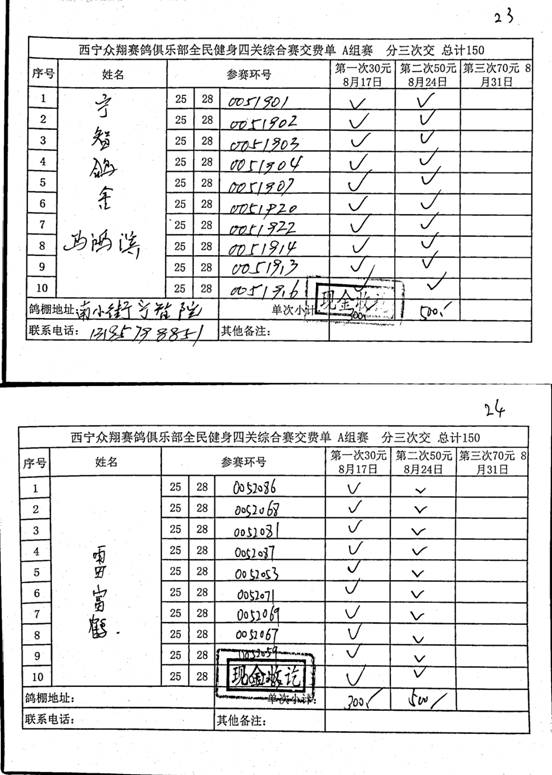 23
西宁众翔赛鸽俱乐部全民健身四关综合赛交费单 A组赛 分三次交 总计150
序号 姓名 参赛环号 第一次30元 8月17日 第二次50元 8月24日 第三次70元 8月31日
宁智鸽舍
马鸿滨
1 25 28 0051901 ✓ ✓
2 25 28 0051902 ✓ ✓
3 25 28 0051903 ✓ ✓
4 25 28 0051904 ✓ ✓
5 25 28 0051907 ✓ ✓
6 25 28 0051920 ✓ ✓
7 25 28 0051922 ✓ ✓
8 25 28 0051914 ✓ ✓
9 25 28 0051913 ✓ ✓
10 25 28 0051916 ✓ ✓
鸽棚地址: 南小街宁智院 单次小计: 300 500
现金收讫
联系电话: 其他备注:
24
西宁众翔赛鸽俱乐部全民健身四关综合赛交费单 A组赛 分三次交 总计150
序号 姓名 参赛环号 第一次30元 8月17日 第二次50元 8月24日 第三次70元 8月31日
雷富鹤
1 25 28 0052086 ✓ ✓
2 25 28 0052068 ✓ ✓
3 25 28 0052081 ✓ ✓
4 25 28 0052087 ✓ ✓
5 25 28 0052053 ✓ ✓
6 25 28 0052071 ✓ ✓
7 25 28 0052069 ✓ ✓
8 25 28 0052067 ✓ ✓
9 25 28 0052059 ✓ ✓
10 25 28 ✓ ✓
现金收讫
鸽棚地址: 单次小计: 300 500
联系电话: 其他备注: